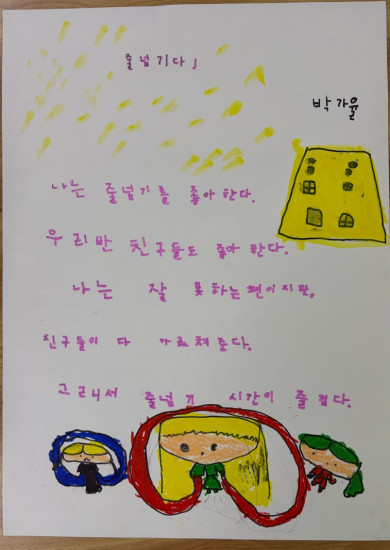 줄넘기다!
박가율
나는 줄넘기를 좋아한다.
우리반 친구들도 좋아한다.
나는 잘 못하는편이지만,
친구들이 다 가르쳐준다.
그러니서 줄넘기 시간이 즐겁다.